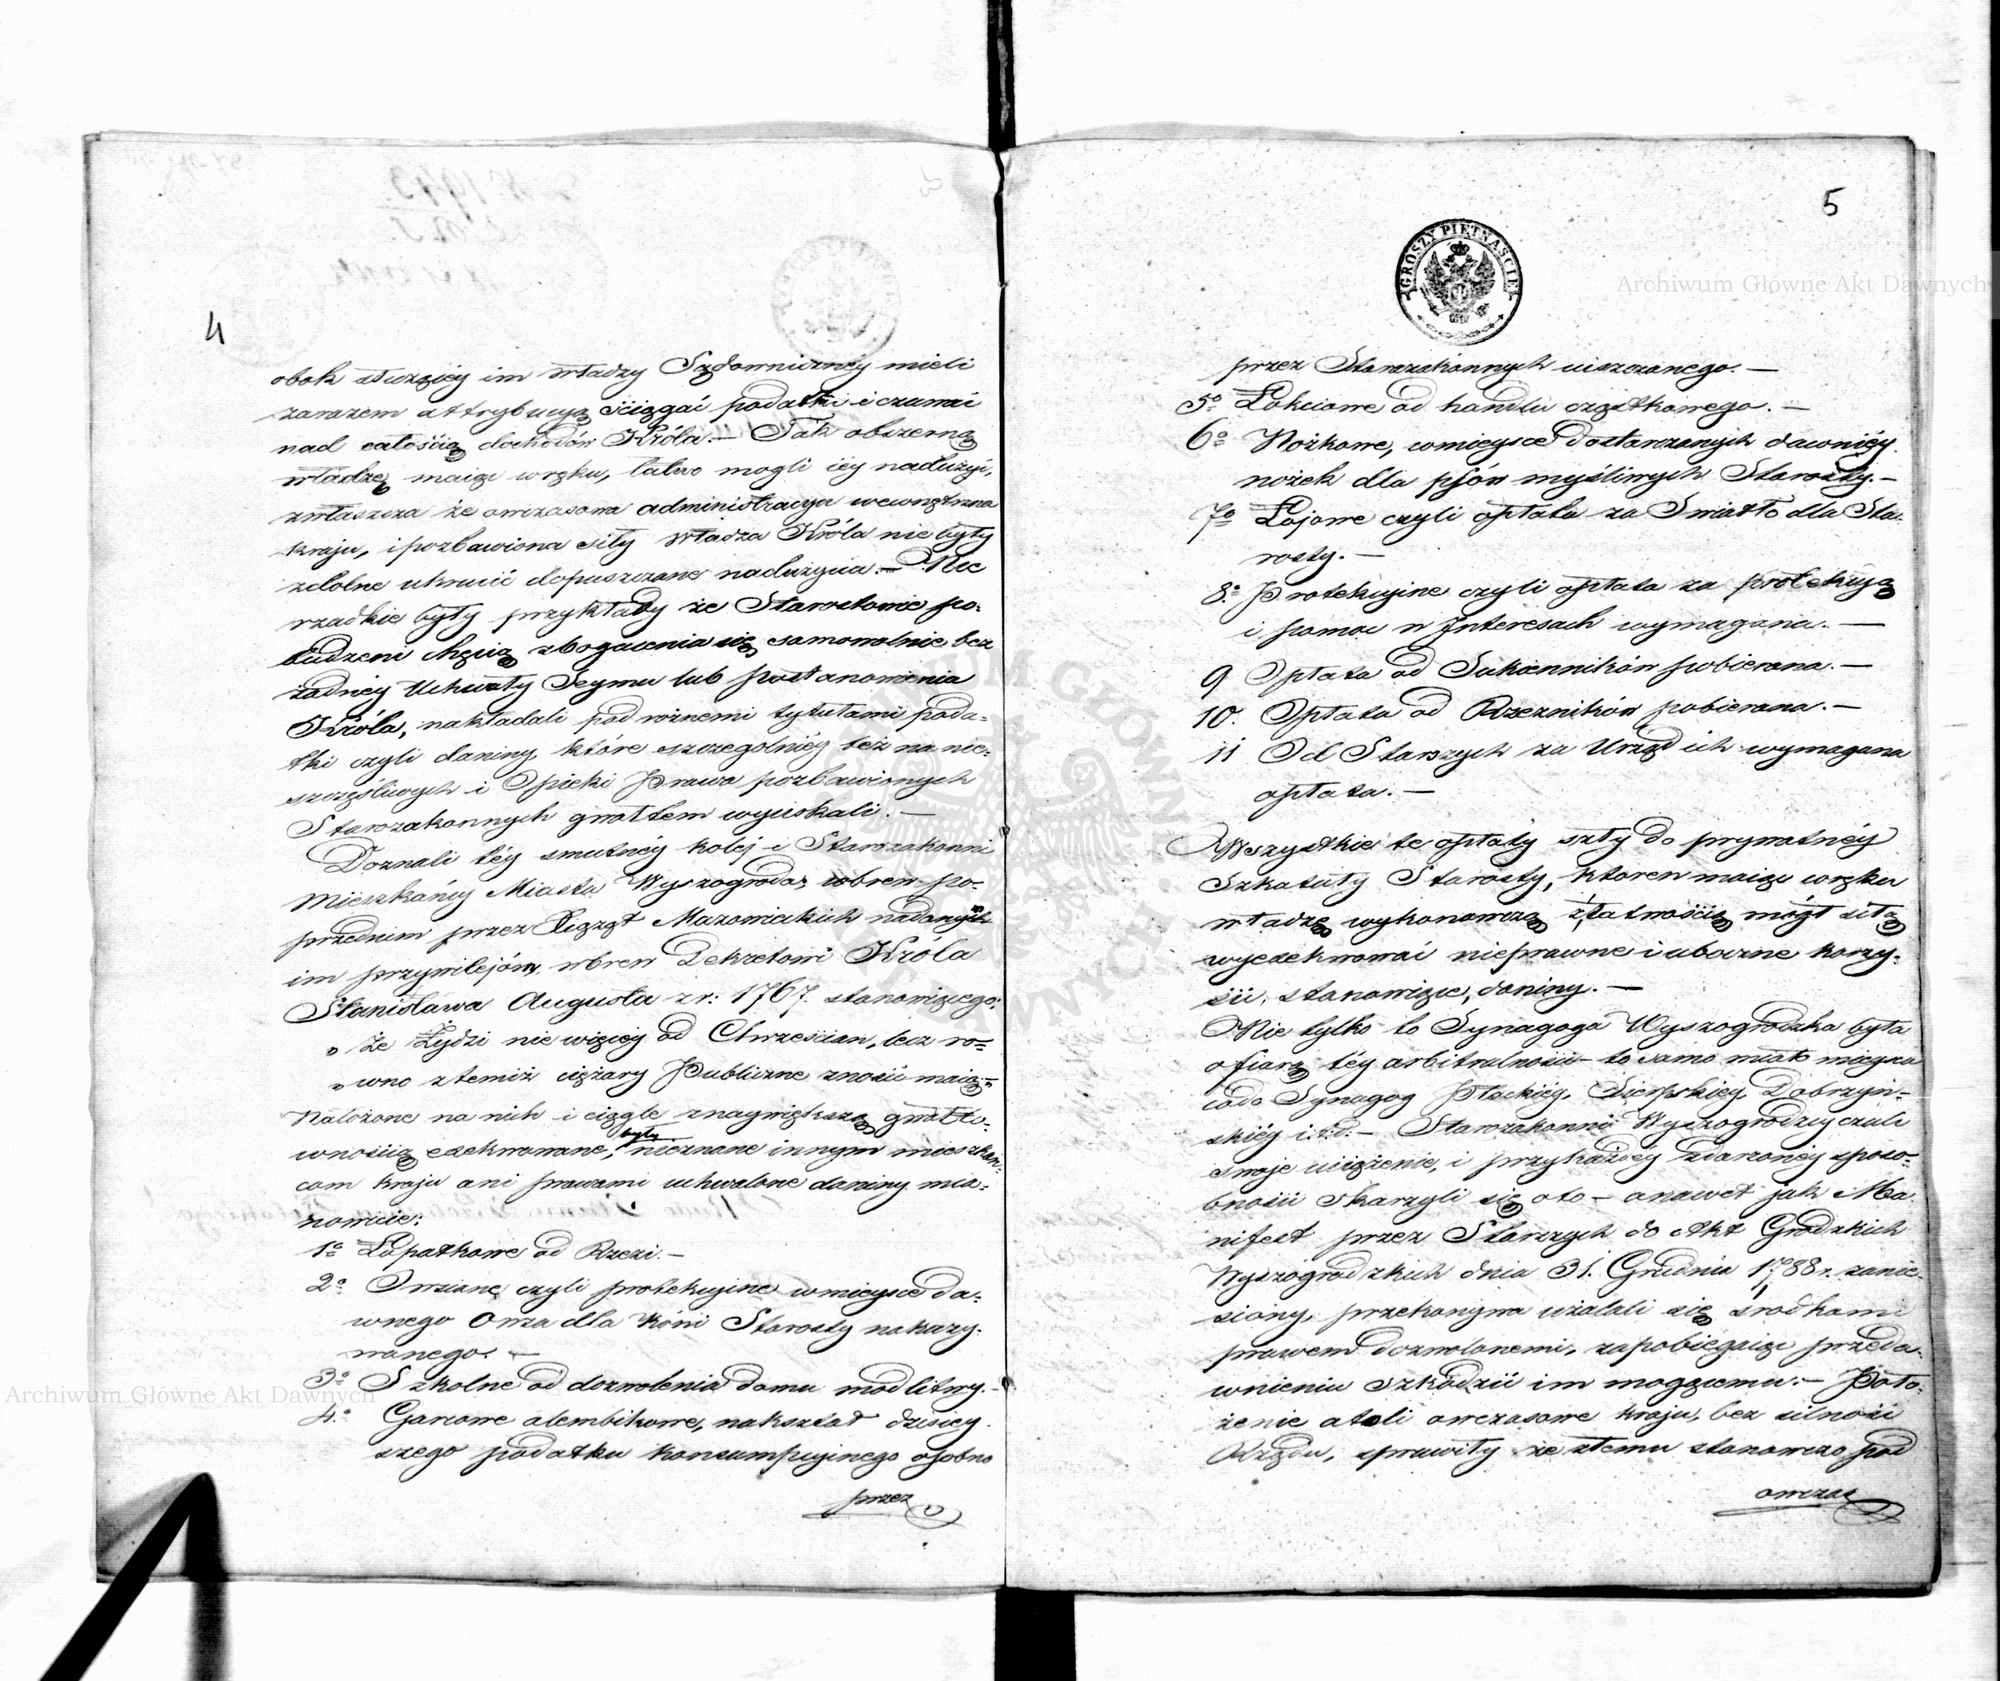 4
obok służącéy im władzy Sądowniczéy mieli
zarazem attrybucyą ściągać podatki i czuwać
nad całością dochodów Króla. — Tak obszerną
władzę maiąc w ręku, łatwo mogli iéy nadużyć,
zwłaszcza że owczasowa administracya wewnętrzna
kraju, i pozbawiona siły władza Króla nie były
zdolne ukrucić dopuszczane nadużycia. — Nie
rzadkie były przykłady że Starostowie po-
budzeni chęcią zbogacenia się, samowolnie bez
żadnéy Uchwały Seymu lub postanowienia
Króla, nakładali pod różnemi tytułami poda-
tki czyli daniny, które szczególniéy też na nie-
szczęśliwych i Opieki Prawa pozbawionych
Starozakonnych gwałtem wyciskali. —
Doznali téy smutnéy kolej i Starozakonni
Mieszkańcy Miasta Wyszogroda, wbrew po-
przednim przez Xiążąt Mazowieckich nadanych
im przywilejów, wbrew Dekretowi Króla
Stanisława Augusta z r: 1767. stanowiącego:
„ że Żydzi nie więcéy od Chrześcian, lecz ro-
„ wno z temiż ciężary Publiczne znosić maią —"
Nałożone na nich i ciągle z naywiększą gwałto-
wnością exekwowane, były nieznane innym mieszkań-
com kraju ani prawami uchwalone daniny mia-
nowicie:
1o Łopatkowe od Rzezi. —
2o Owsiane czyli protekcyine w mieysce da-
wnego Owsa dla Koni Starosty nakazy-
wanego. —
3o Szkolne od dozwolenia domu modlitwy. —
4o Garcowe alembikowe, na kształt dzisiey-
szego podatku konsumpcyinego osobno
przez
5
GROSZY PIĘTNAŚCIE
przez Starozakonnych uiszczanego. —
5o Łokciowe od handlu cząstkowego. —
6o Nożkowe, w mieysce dostarczanych dawniéy
nożek dla psów myśliwych Starosty. —
7o Łojowe czyli opłata za Światło dla Sta-
rosty. —
8o Protekcyine czyli opłata za protekcyą
i pomoc w Interesach wymagana. —
9 Opłata od Sukienników pobierana. —
10. Opłata od Rzezników pobierana. —
11 Od Starszych za Urząd ich wymagana
opłata. —
Wszystkie te opłaty szły do prywatnéy
Szkatuły Starosty, który maiąc w ręku
władzę wykonawczą z łatwością mógł siłą
wyexekwować nieprawne i uboczne korzy-
ści, stanowiące, daniny. —
Nie tylko to Synagoga Wyszogrodzka była
ofiarą téy arbitralności — to samo miało mieysce
co do Synagog Płockiéy, Sierpskiéy, Dobrzyń-
skiéy i. t. d. — Starozakonni Wyszogrodzcy czuli
swoje uciążenie, i przy każdéy zdarzonéy sposo-
bności skarzyli się o to — a nawet jak Ma-
nifest przez Starszych do Akt Grodzkich
Wyszogrodzkich dnia 31. Grudnia 1788 r. zanie-
siony, przekonywa użalali się środkami
prawem dozwolonemi, zapobiegaiąc przeda-
wnieniu szkodzić im mogącemu. — Poło-
żenie atoli owczasowe kraju, bez silności
Rządu, sprawiły że złemu stanowczo pod
owczas
Archiwum Główne Akt Dawnych
Archiwum Główne Akt Dawnych